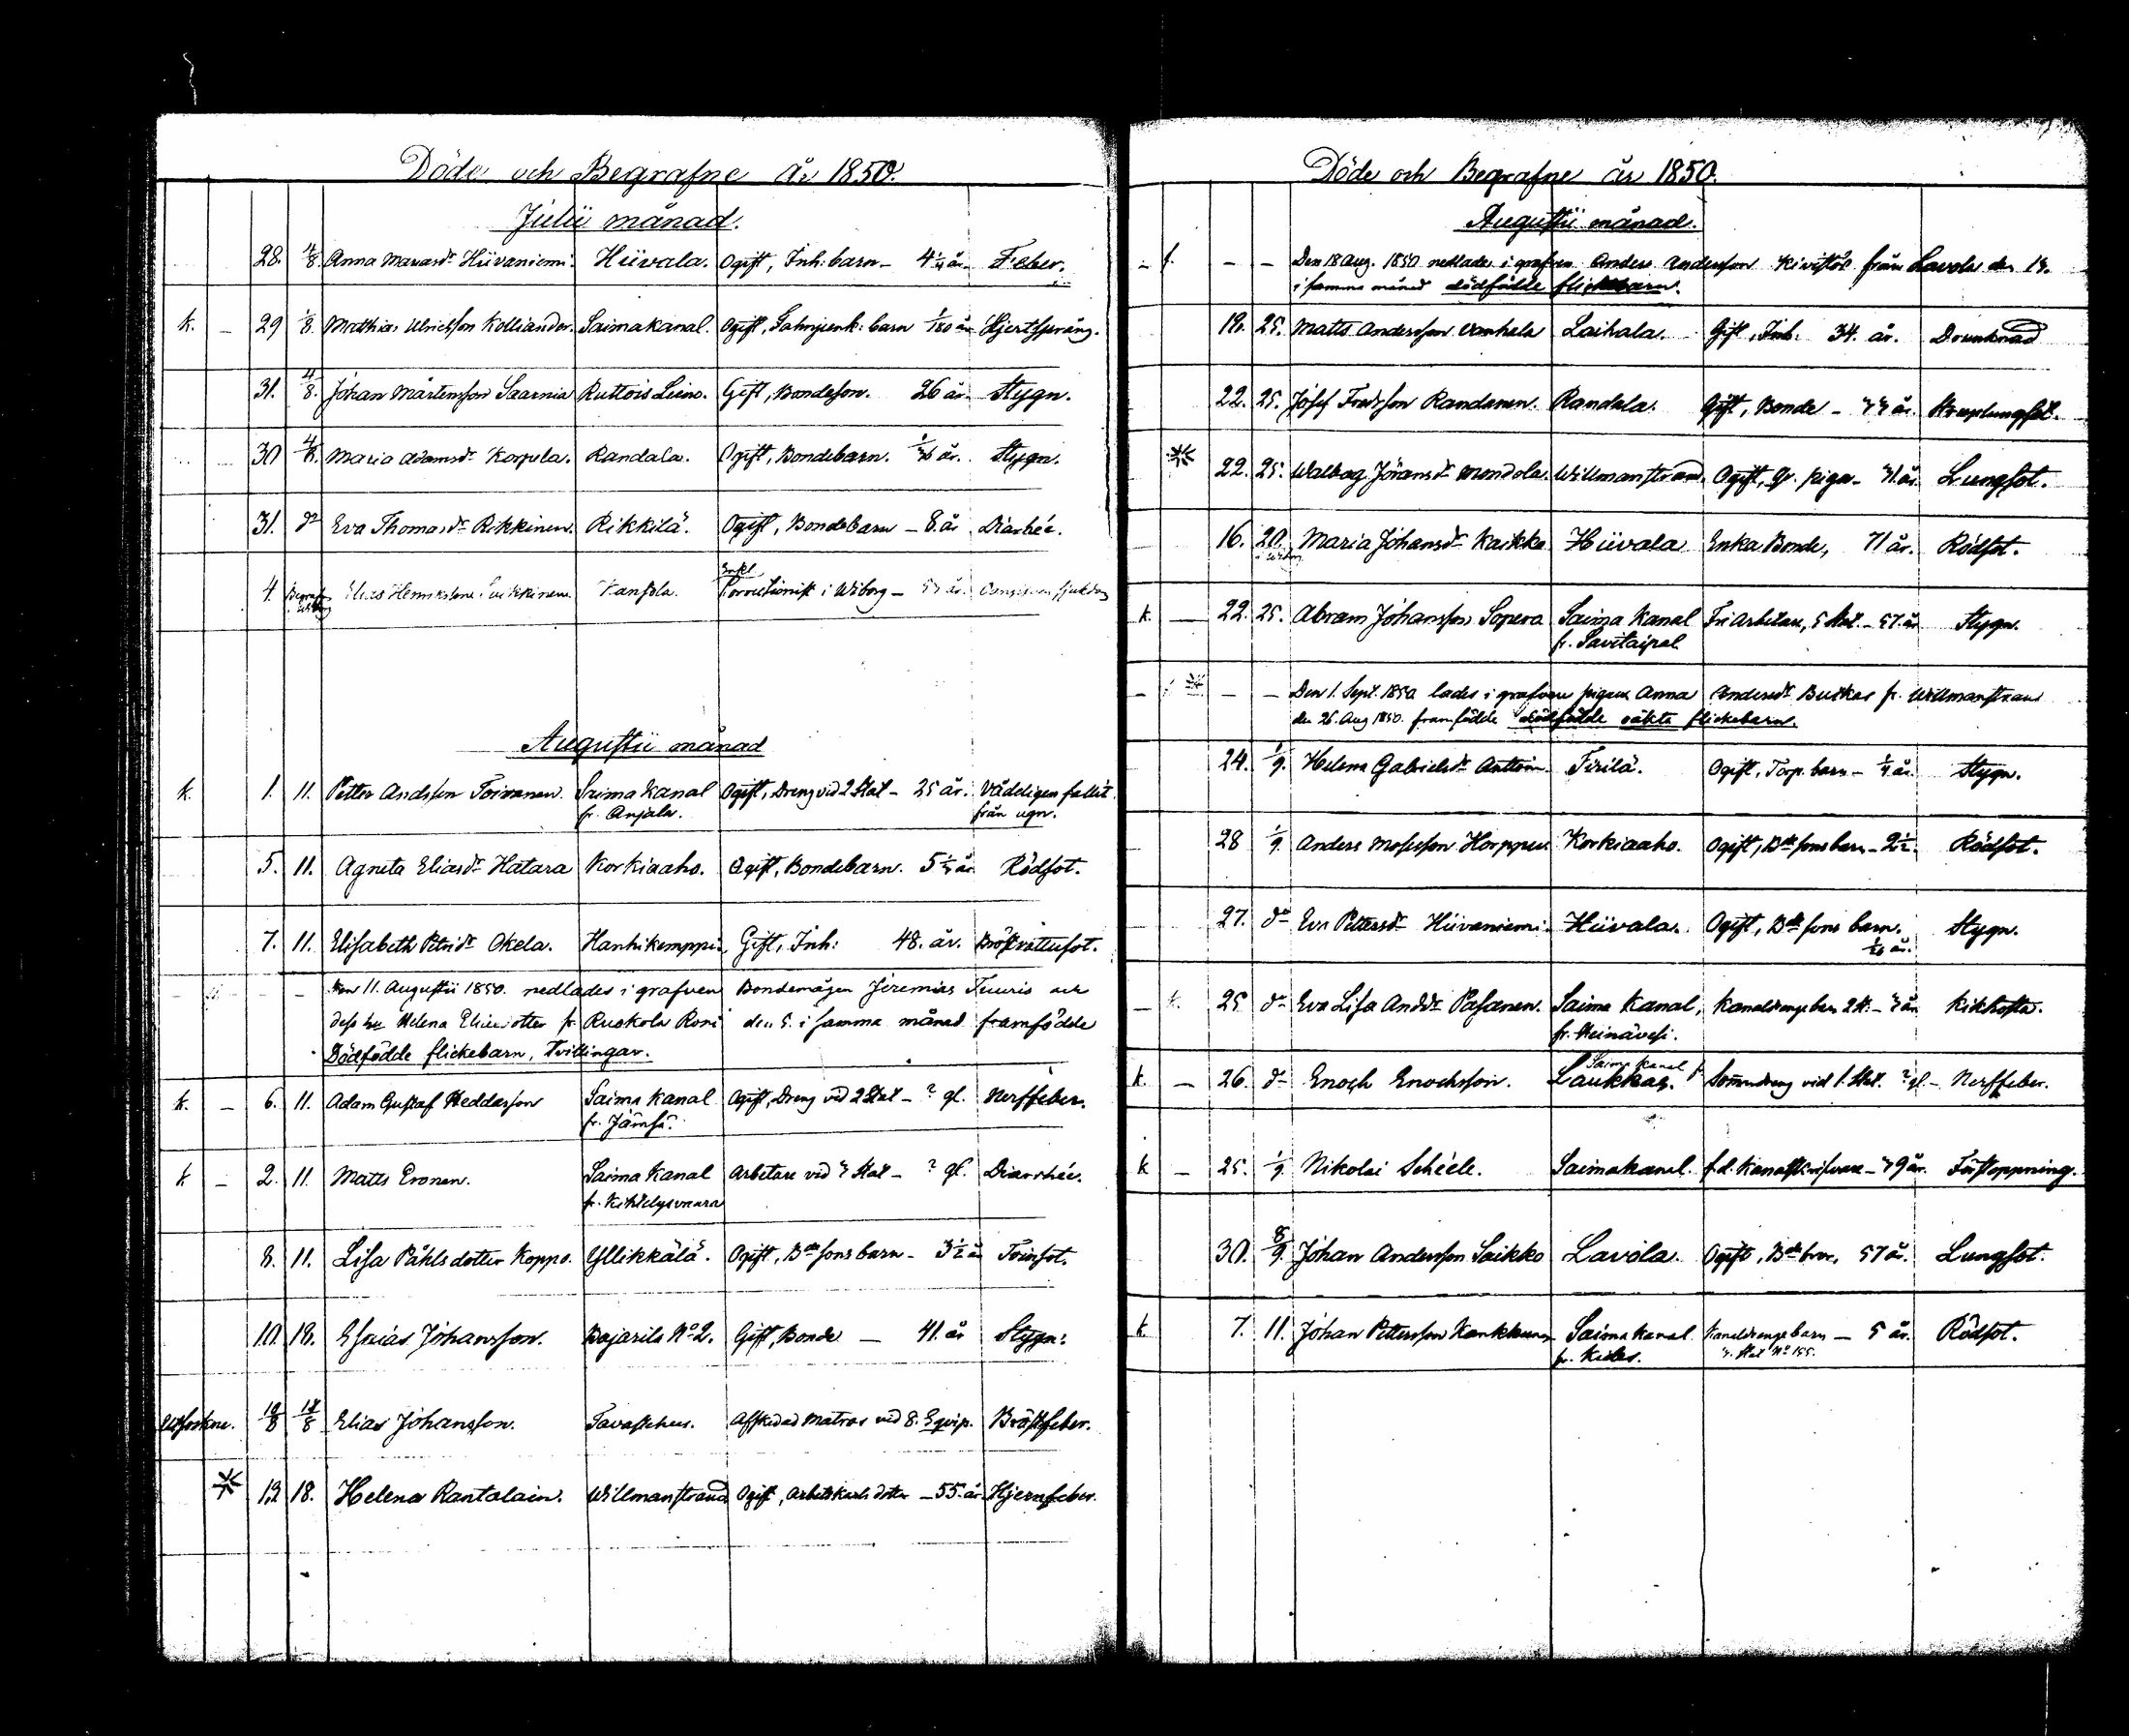 Döde och Begrafne år 1850.
Julii månad.
28. 4/8. Anna Hiivaniemi. Hiivala. Ogift, Inh: barn - 4 1/4 år. Feber.
k. - 29 /8. Matthias Ulricsson Kolliander. Saima kanal. Ogift, barn år
31. 4/8. Johan Mårtensson Saarnia Ruttois Leino. Gift, Bondeson. 26 år. Stygn.
30 4/8. Maria Adamsdr Korpela. Randala. Ogift, Bondebarn. år. Stygn.
31. do Eva Thomasdr Rikkinen. Rikkilä. Ogift, Bondebarn - 8 år Diarhée.
4. Begrafven i Wiborg Elias
Enkl. Correctionist i Wiborg - år.
Augustii månad
k. 1. 11. Petter Andsson Toivanen. Saima Kanal Ogift, Dreng vid 2 Stat - 25 år. Våddigen fallit
fr. Anjala. från ugn.
5. 11. Agneta Eliasdr Hatara Korkiaaho. Ogift, Bondebarn. 5 år. Rödsot.
7. 11. Elisabeth Petridr Okela. Hanhikemppi. Gift, Inh: 48. år.
Den 11. Augustii 1850. nedlades i grafven Bondemågen Jeremias Tuuris och
dess hu Helena fr. Ruskola Roni den 5. i samma månad framfödde
Dödfödde flickebarn, Tvillingar.
k. - 6. 11. Adam Gustaf Heddasson Saima Kanal Ogift, Dreng vid 2 Stat - ? gl. Nerffeber.
fr. Jämsä.
k - 2. 11. Matts Eronen. Saima Kanal Arbetare vid 3 Stat - ? gl. Diarrhée.
fr. Kiktelysvaara
8. 11. Lisa Påhlsdotter Koppo. Yllikkälä. Ogift, Bdesonsbarn - 3 1/2 år Tvinsot.
10. 18. Esaias Johansson. Bojarila No 2. Gift, Bonde - 41. år Stygn.
Utsocknes. 10/8 18/8 Elias Johansson. Tavastehus. Affskedad Matros vid 8. Eqvip. Bröstfeber.
* 12 18. Helena Rantalain. Willmanstrand Ogift, Arbetskarls dotter - 55. år. Hjernfeber.
Döde och Begrafne år 1850.
Augustii månad.
- f. - - Den 18 Aug. 1850 nedlades i grafven Anders Andersson från Lavola den
i samma månad dödfödde flickebarn.
18. 25. Matts Andersson Vanhala Laihala. Gift, Inh: 34. år. Drunknad
22. 25. Josef Fredsson Randanen. Randala. Gift, Bonde - år.
* 22. 25. Walborg Jöransdr Mondola. Willmanstrand. Ogift, piga - år. Lungsot.
16. 20. Maria Johansdr Kaikko Hiivala Enka Bonde, 71 år. Rödsot.
k. - 22. 25. Abram Johansson Sopera Saima Kanal Fri Arbetare, 5 Stat. - 57. år Stygn.
fr. Savitaipal
- * - - Den 1. Sept. 1850 lades i grafven pigan Anna Andersdr Buskas fr. Willmanstrand
den 26. Aug 1850. framfödde dödfödde oäkta flickebarn.
24. 1/9. Helena Gabrielsdr Anttoin. Tirilä. Ogift, Torp. barn - 1/4 år. Stygn.
28 1/9. Anders Mosesson Horppu Korkiaaho. Ogift, Bdesonsbarn - 2 1/2. Rödsot.
27. do Eva Pettersdr Hiivaniemi. Hiivala. Ogift, Bdesons barn. Stygn.
år.
- k. 25 do Eva Lisa Anddr Pasanen. Saima Kanal, Kanaldrengs barn 2 St. - år Kikhosta.
fr. Heinävesi.
k. - 26. do Enoch Enochsson. Saima Kanal fr. Laukkas. Sommardreng vid 1. Stat. ? gl - Nerffeber.
k - 25. 1/9. Nikolai Scheele. Saima kanal. f.d. Kanalskrifvare - 39 år. Förstoppning.
30. 8/9. Johan Andersson Saikko Lavola. Ogift, Bdebror, 57 år. Lungsot.
k 7. 11. Johan Pettersson Saima Kanal Kanaldrengs barn - 5 år. Rödsot.
fr. Kides. Stat No 155.